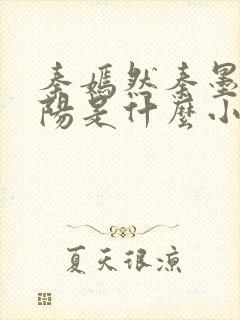 秦嫣然秦墨
陽是什麼小
夏天很涼